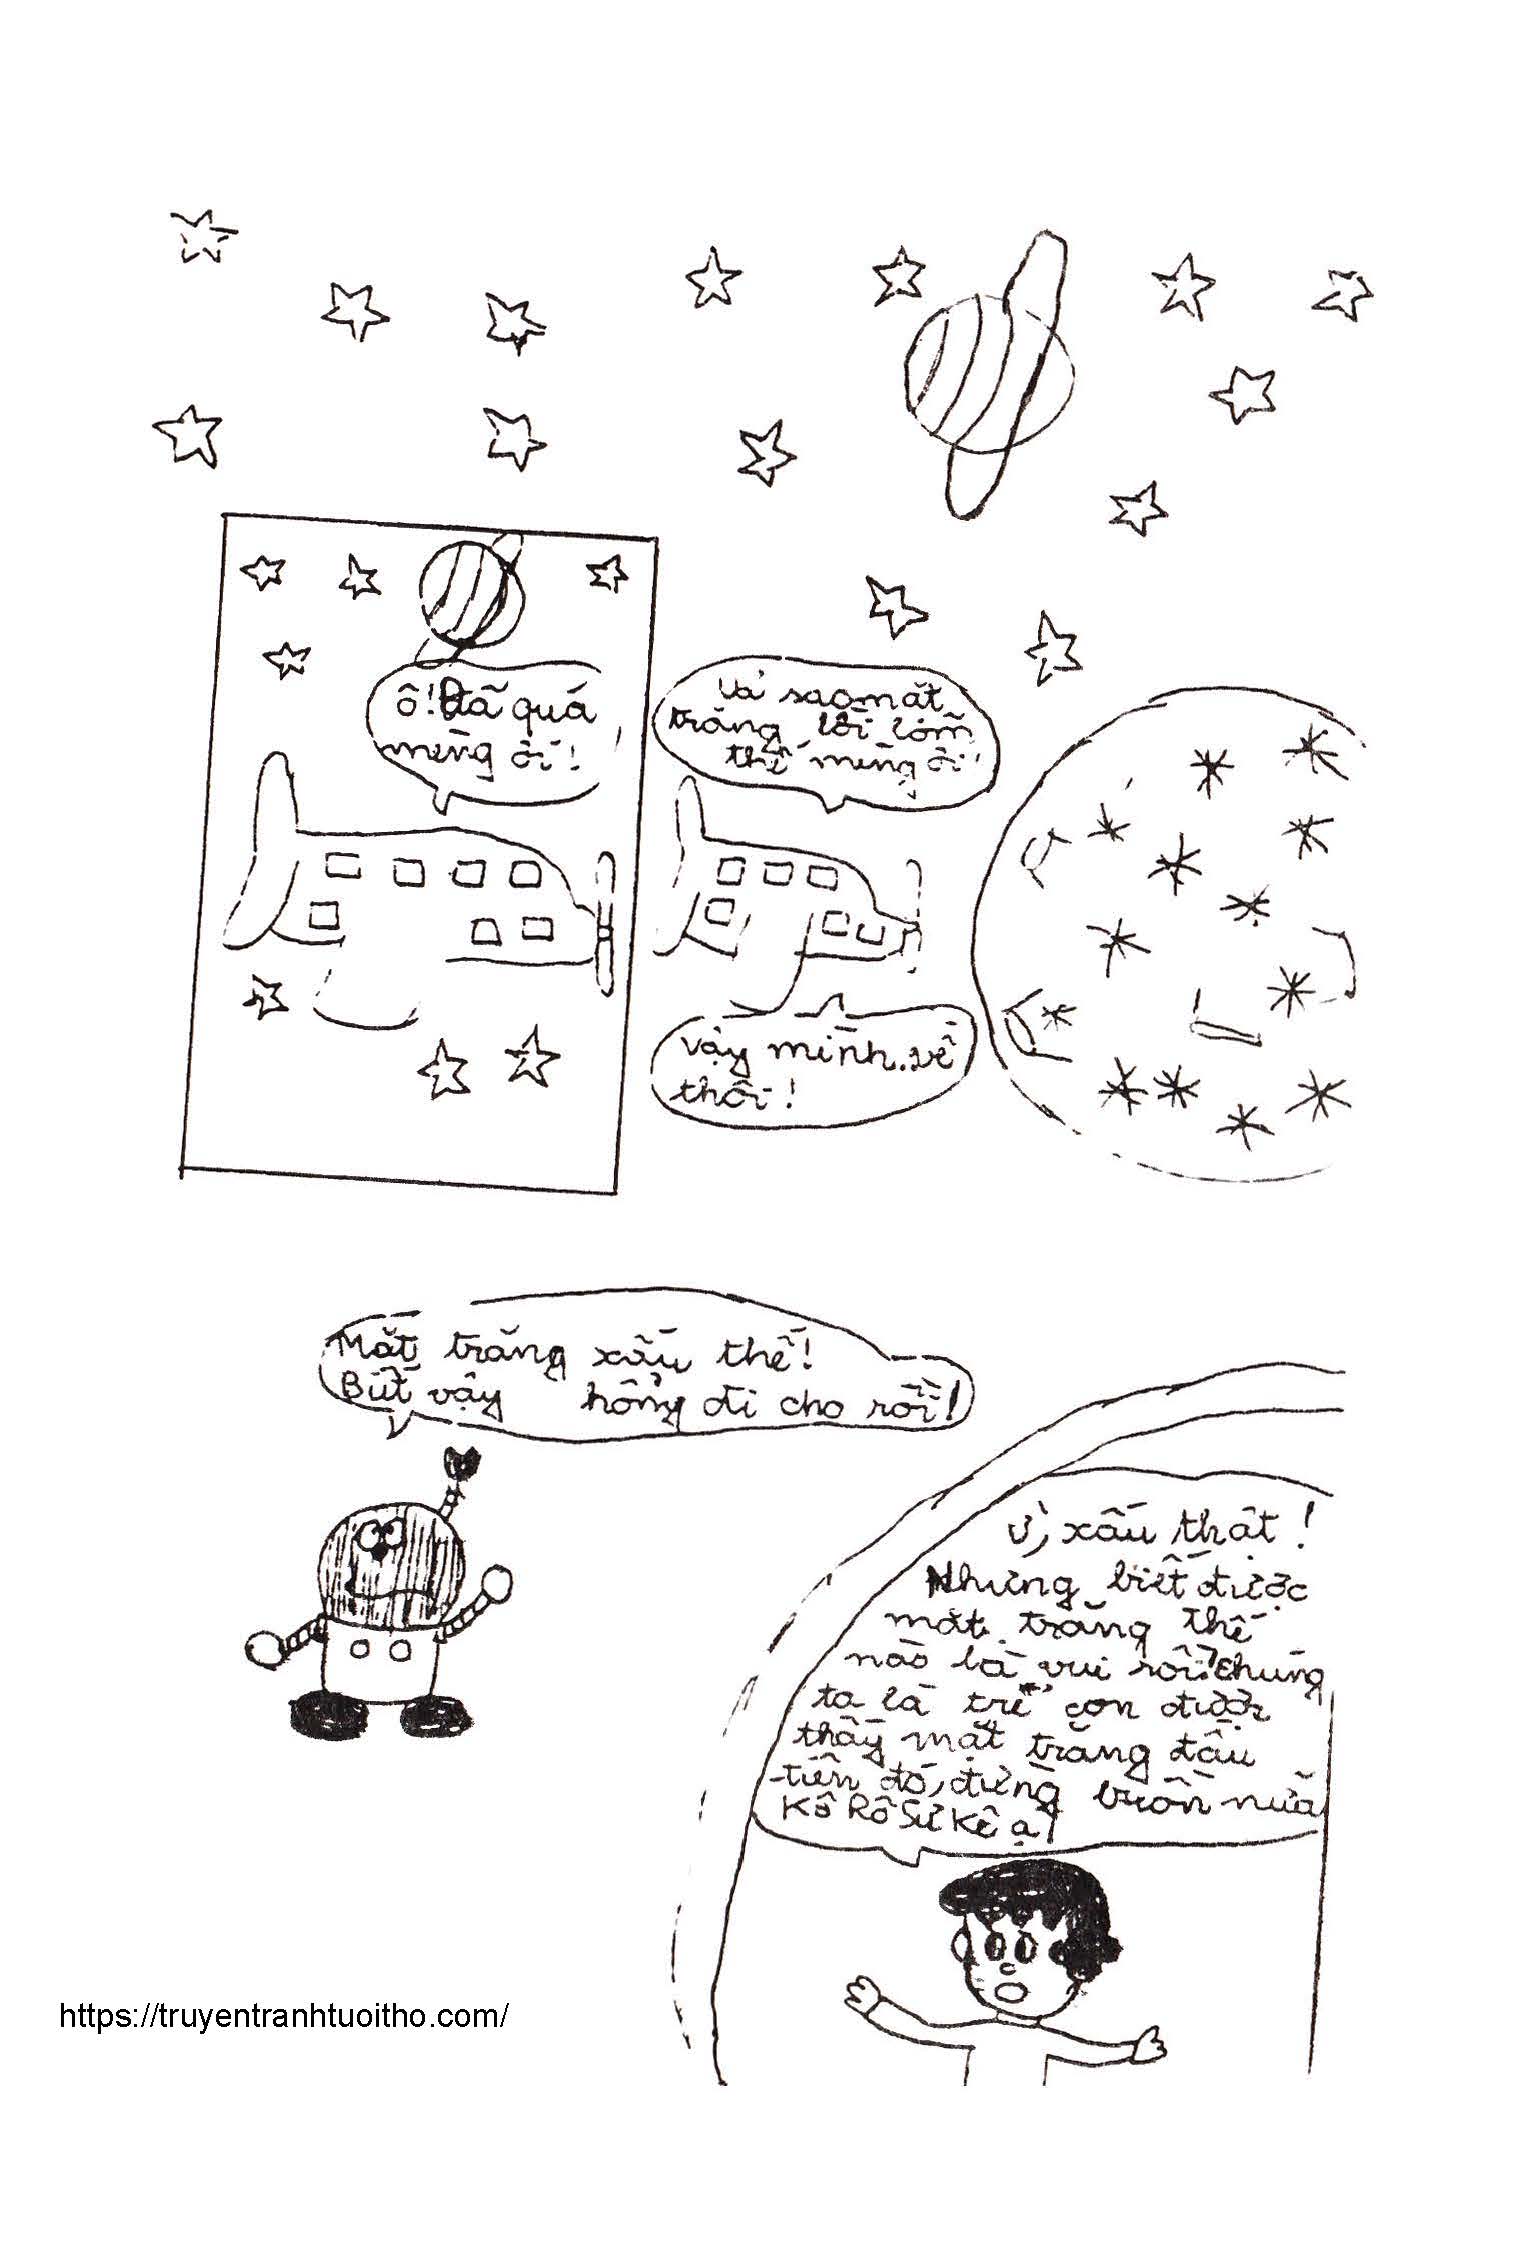 ô! Đã quá
mèng ơi!
Uả sao mặt
trăng lồi lõm
thế mèng ơi!
Vậy mình về
thôi!
Mặt trăng xấu thế!
Biết vậy hổng đi cho rồi!
Ừ, xấu thật!
Nhưng biết được
mặt trăng thế
nào là vui rồi! chúng
ta là trẻ con được
thấy mặt trăng đầu
tiên đó, đừng buồn nữa
Kô Rô Sư Kê ạ!
https://truyentranhtuoitho.com/